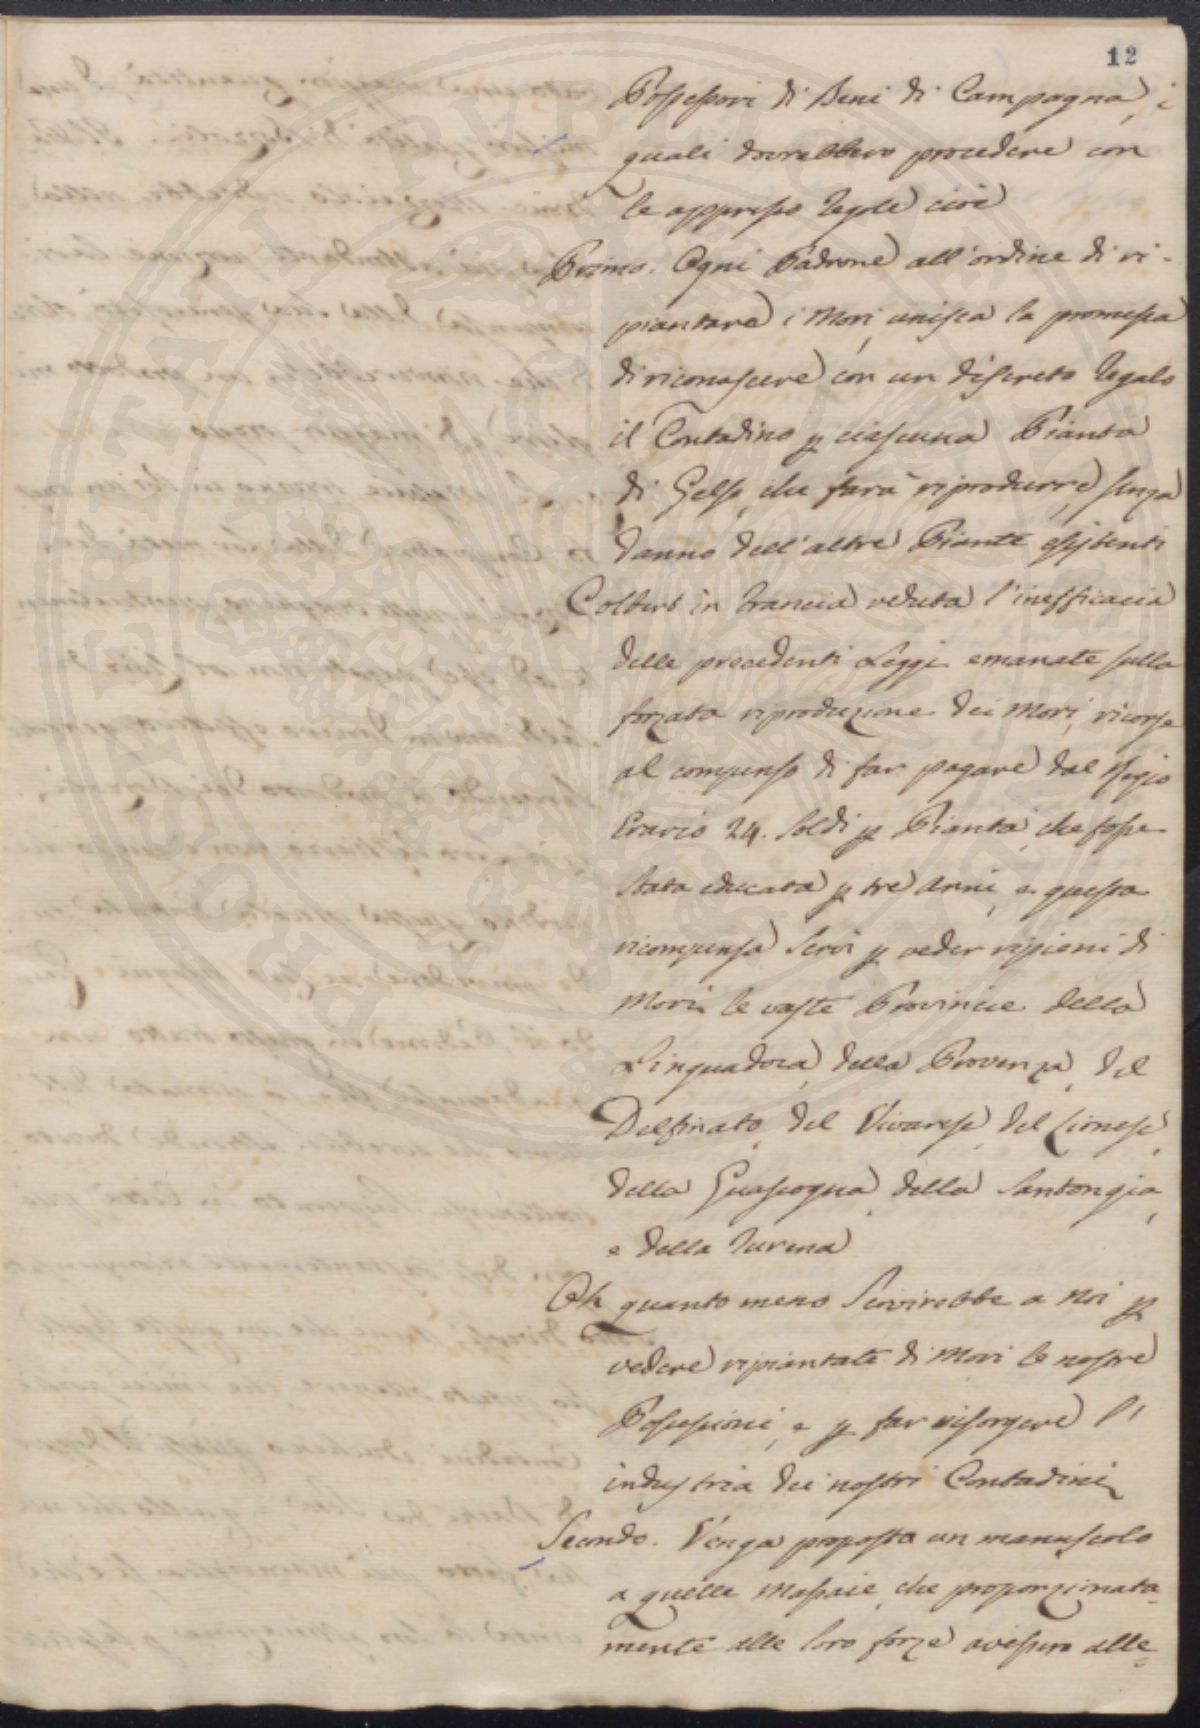 12
Possessori di Beni di Campagna, i
quali dovrebbero procedere con
le appresso regole cioè
Primo. Ogni Padrone all'ordine di ri-
piantare i Mori, unisca la promessa
di riconoscere con un discreto regalo
il Contadino p ciascuna Pianta
di Gelso, che farà riprodurre, senza
danno dell'altre Piante esistenti
Colbert in Francia veduta l'inefficacia
delle precedenti Leggi emanate sulla
forzata riproduzione dei Mori, ricorse
al compenso di far pagare dal Regio
Erario 24. soldi p Pianta, che fosse
stata educata p tre anni, e questa
ricompensa servì p veder ripieni di
Mori le vaste Provincie della
Linguadoca, della Provenza, del
Delfinato, del Vivarese, del Lionese,
della Guascogna, della Santongia,
e della Turena
Oh quanto meno servirebbe a noi p
vedere ripiantate di Mori le nostre
Possessioni, e p far risorgere l'
industria dei nostri Contadini
Secondo. Venga proposto un manuscolo
a quelle Massaie, che proporzionata-
mente alle loro forze avessero alle=